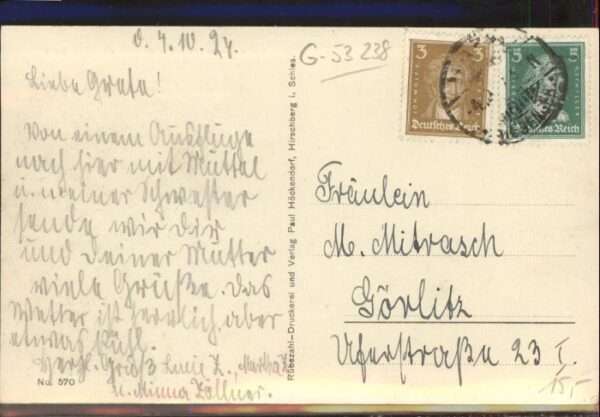 d. 4. 10. 27.
Liebe Greta!
Von einem Ausfluge
nach hier mit Muttel
u. meiner Schwester
sende wir dir
und deiner Mutter
viele Grüße. Das
Wetter ist herrlich aber
etwas kühl.
Herzl. Gruß Lucie Z., Martha Z.
u. Minna Zöllner.
No. 570
Rübezahl-Druckerei und Verlag Paul Höckendorf, Hirschberg i. Schles.
G-53 238
3 3
Deutsches Reich
5
Deutsches Reich
Fräulein
M. Mitrasch
Görlitz
Uferstraße 23 I.
15,-